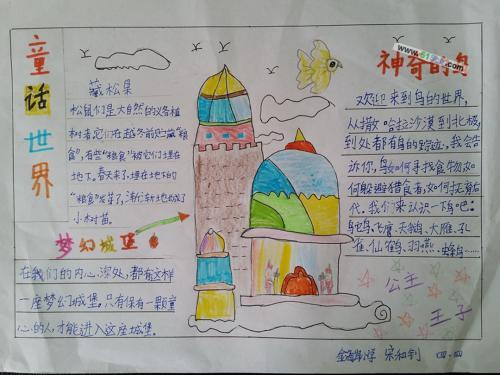 童话世界
藏松果
松鼠们是大自然的义务植
树者,它们在越冬前贮藏"粮
食",有些"粮食"被它们土埋在
地下。春天来了,埋在地下的
"粮食"发芽了,渐渐地成了
小树苗。
梦幻城堡
在我们的内心深处,都有这样
一座梦幻城堡。只有保有一颗童
心的人,才能进入这座城堡。
神奇的鸟
www.61
欢迎来到鸟的世界,
从撒哈拉沙漠到北极,
到处都有鸟的踪迹,我会告
诉你,鸟如何寻找食物,如
何躲避捕食者,如何抚育后
代。我们来认识一下鸟吧:
鸵鸟、飞鹰、天鹅、大雁、孔
雀、仙鹤、羽燕、蜂鸟……
公主
王子
四.四